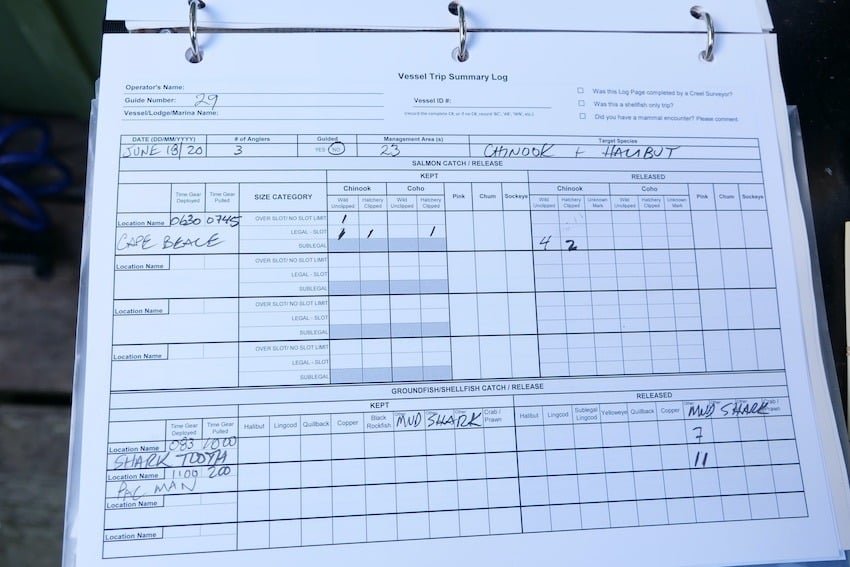 Vessel Trip Summary Log
Operator's Name:
Guide Number: 29
Vessel/Lodge/Marina Name:
Vessel ID #:
(Record the complete C#, or if no C#, record 'BC', 'AK', 'WA', etc.)
Was this Log Page completed by a Creel Surveyor?
Was this a shellfish only trip?
Did you have a mammal encounter? Please comment
DATE (DD/MM/YYYY) # of Anglers Guided Management Area(s) Target Species
JUNE 18/20 3 YES NO 23 CHINOOK + HALIBUT
SALMON CATCH / RELEASE
KEPT RELEASED
Time Gear Deployed Time Gear Pulled SIZE CATEGORY Chinook Coho Pink Chum Sockeye Chinook Coho Pink Chum Sockeye
Wild Unclipped Hatchery Clipped Wild Unclipped Hatchery Clipped Wild Unclipped Hatchery Clipped Unknown Mark Wild Unclipped Hatchery Clipped Unknown Mark
Location Name 0630 0745 OVER SLOT/ NO SLOT LIMIT 1
CAPE BEALE LEGAL - SLOT 1 1 1
SUBLEGAL 4 2
Location Name OVER SLOT/ NO SLOT LIMIT
LEGAL - SLOT
SUBLEGAL
Location Name OVER SLOT/ NO SLOT LIMIT
LEGAL - SLOT
SUBLEGAL
Location Name OVER SLOT/ NO SLOT LIMIT
LEGAL - SLOT
SUBLEGAL
GROUNDFISH/SHELLFISH CATCH / RELEASE
KEPT RELEASED
Time Gear Deployed Time Gear Pulled Halibut Lingcod Quillback Copper Black Rockfish Other MUD SHARK Crab / Prawn Halibut Lingcod Sublegal Lingcod Yelloweye Quillback Copper Other MUD SHARK Crab / Prawn
Location Name 083 1000 7
SHARK TOOTH
Location Name 1100 200 11
PAC MAN
Location Name
Location Name